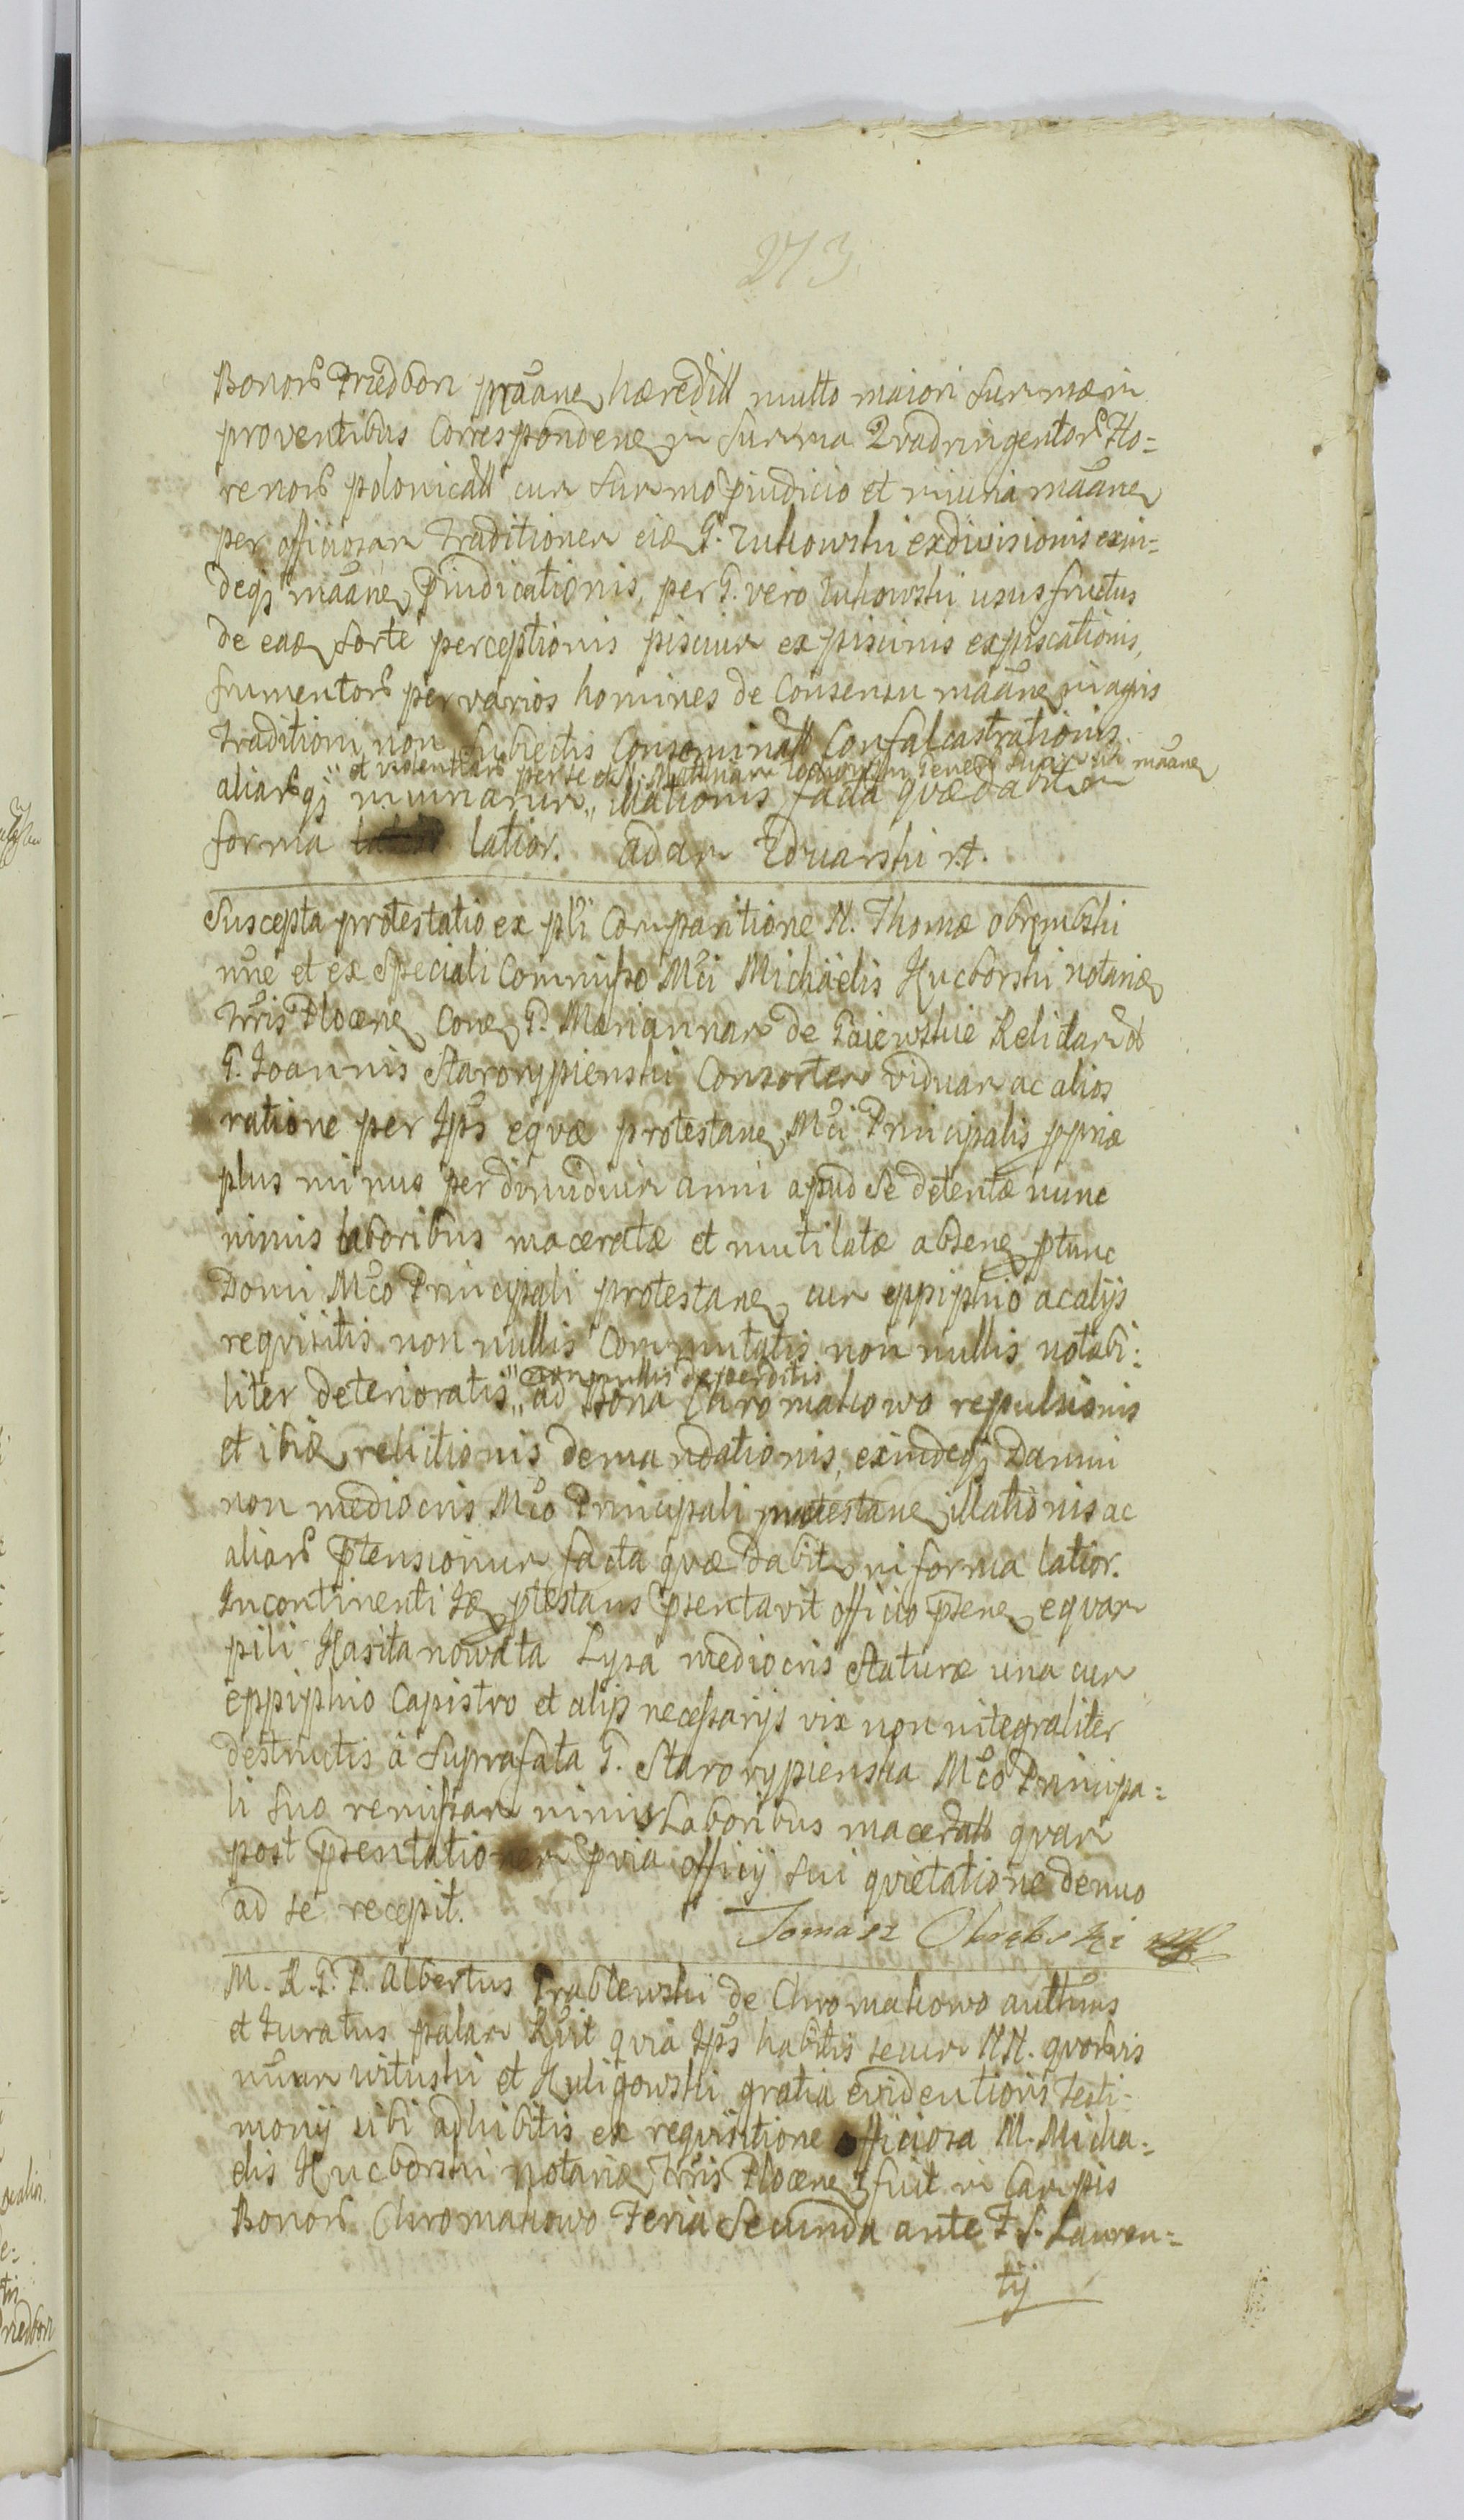 273
Bonorũ Przedbory mãane hæredill multo maiori summæ in
proventibus Correspondene in summa Quadringentorũ Flo=
renorũ polonicall cum summo p̃iudicio et iniuria mãane
per officiosam traditionem eidẽ G. Zukowski exdivisionis exin=
deq̃ mãane p̃iudicationis, per G. vero Zukowski ususfructus
de eadẽ sorte perceptionis piscium ex piscinis expiscationis,
frumentorũ per varios homines de Consensu mãane in agris
traditioni non subiectis Conseminall Confalcastrationis
et violentiarũ per se et mãane
aliarũq̃ iniuriarum illationis facta quæ dabitur in
forma latior. Adam Zdunarski mp.
Suscepta protestatio ex pli Comparitione N. Thomæ Obrembski
nñe et ex speciali Commisso Mci Michaelis Kucborski notarii
Trris Plocen Cone G. Mariannam de Gaiewskie Relictam olim
G. Joannis Starorypienski Consortem viduam ac alios
ratione per Ips equæ protestane Mci Principalis ppriæ
plus minus per dimidium anni apud se detentæ nunc
nimis laboribus maceratæ et mutilatæ absene ptunc
Domi Mco Principali protestane cum eppiphio ac alijs
requisitis non nullis Commutatis non nullis notabi:
non nullis deperditis
liter deterioratis ad Bona Chromakowo repulsionis
et ibidẽ relictionis demandationis, exindeq̃ Damni
non mediocris Mco Principali protestane illationis ac
aliarũ p̃tensionum facta quæ dabitur in forma latior.
Incontinenti Idẽ ptestans p̃sentavit officio p̃sene equam
pili Kasztanowata Łysa mediocris staturæ una cum
eppiphio Capistro et alijs necessarijs vix non integraliter
destructis à suprafata G. Starorypienska Mco Principa=
li suo remissam nimis laboribus maceratall quam
post p̃sentationem p̃via officij sui quietatione denuo
ad se recepit.
Tomasz Obrębski mp
M. R. G. P. Albertus Wrablewski de Chromakowo authũus
et Juratus palam Rũit quia Ips habitis secum NN. quorũvis
nñum Witwski et Kuligowski gratia evidentioris testi=
monij sibi adhibitis ex requisitione officiosa M. Micha=
elis Kucborski notarii Trris Plocene fuit in Campis
Bonorũ Chromakowo Feria Secunda ante F. S. Lauren=
tij